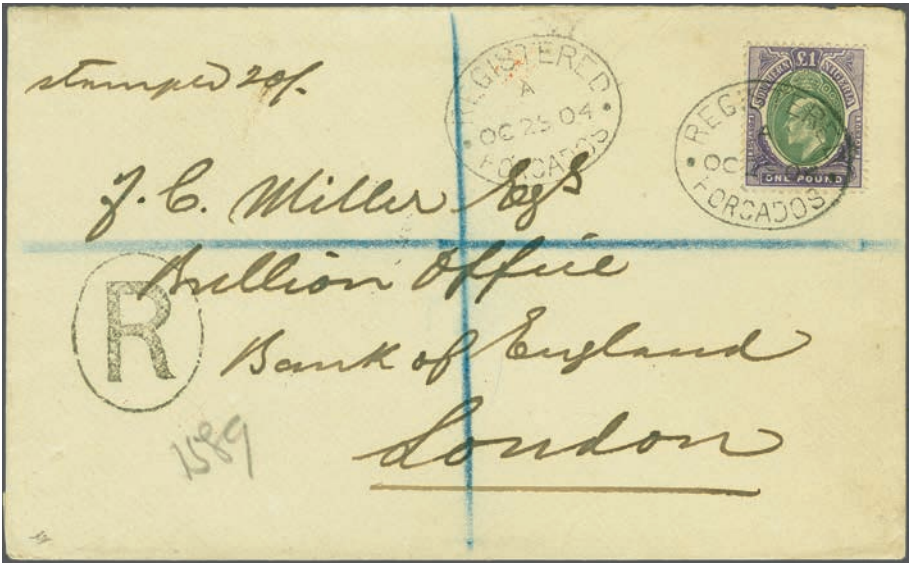 stamped 20/-
REGISTERED
A
OC 25 04
FORCADOS
SOUTHERN £1 NIGERIA
ONE POUND
REGISTERED
A
OC 25 04
FORCADOS
J. C. Miller Esqs
Bullion Office
R
Bank of England
1589
London